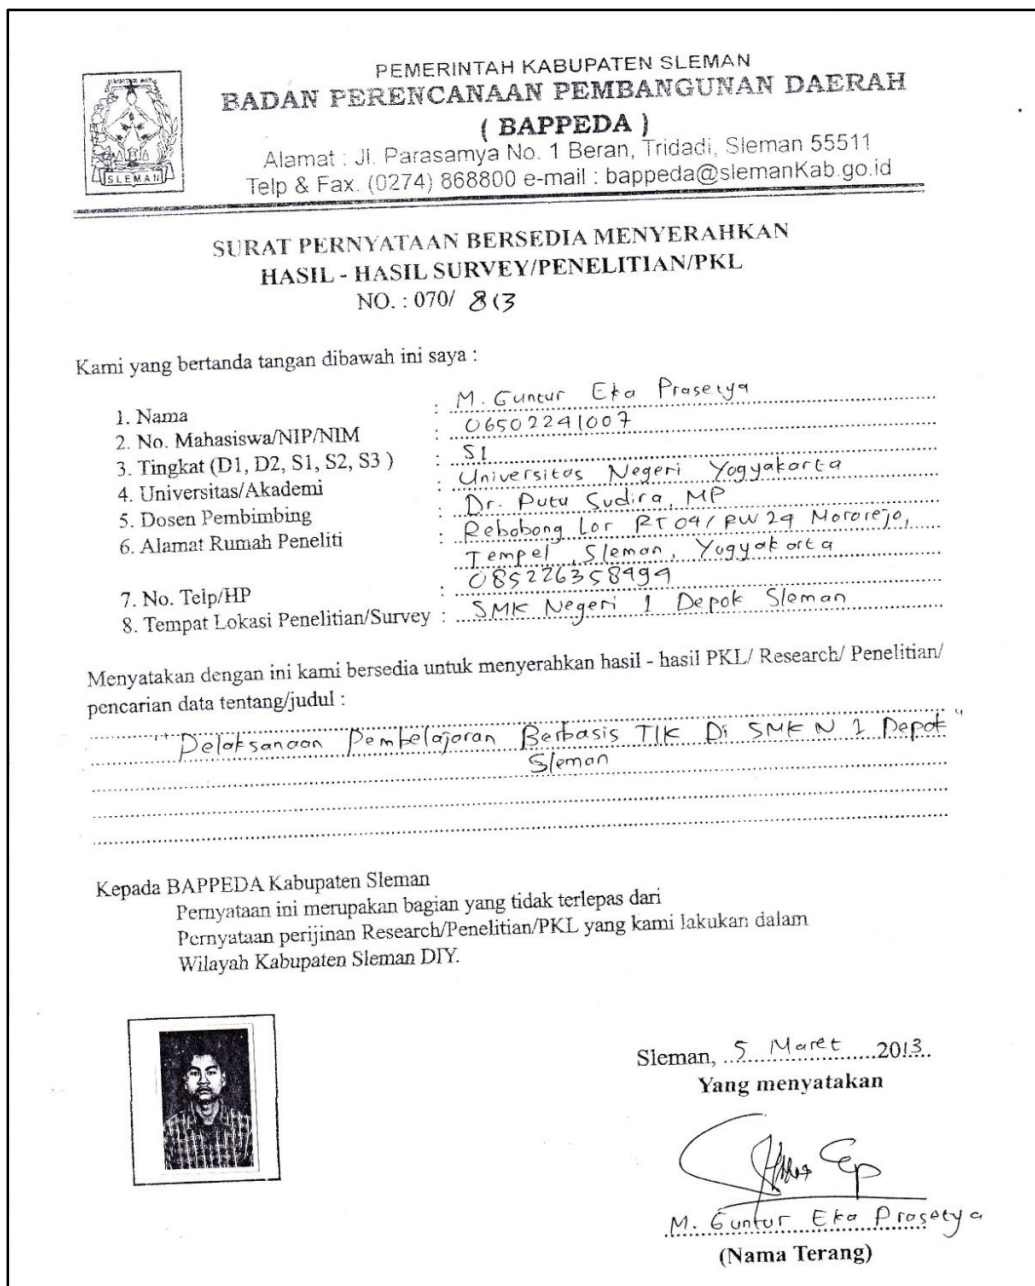 SLEMAN
PEMERINTAH KABUPATEN SLEMAN
BADAN PERENCANAAN PEMBANGUNAN DAERAH
( BAPPEDA )
Alamat : Jl. Parasamya No. 1 Beran, Tridadi, Sleman 55511
Telp & Fax. (0274) 868800 e-mail : bappeda@slemanKab.go.id
SURAT PERNYATAAN BERSEDIA MENYERAHKAN
HASIL - HASIL SURVEY/PENELITIAN/PKL
NO. : 070/ 813
Kami yang bertanda tangan dibawah ini saya :
1. Nama : M. Guntur Eka Prasetya
2. No. Mahasiswa/NIP/NIM : 06502241007
3. Tingkat (D1, D2, S1, S2, S3 ) : S1
4. Universitas/Akademi : Universitas Negeri Yogyakarta
5. Dosen Pembimbing : Dr. Putu Sudira, MP
6. Alamat Rumah Peneliti : Rebobong Lor RT 04/ RW 24 Mororejo,
Tempel, Sleman, Yogyakarta
7. No. Telp/HP : 085226358494
8. Tempat Lokasi Penelitian/Survey : SMK Negeri 1 Depok Sleman
Menyatakan dengan ini kami bersedia untuk menyerahkan hasil - hasil PKL/ Research/ Penelitian/
pencarian data tentang/judul :
"Pelaksanaan Pembelajaran Berbasis TIK Di SMK N 1 Depok"
Sleman
Kepada BAPPEDA Kabupaten Sleman
Pernyataan ini merupakan bagian yang tidak terlepas dari
Pernyataan perijinan Research/Penelitian/PKL yang kami lakukan dalam
Wilayah Kabupaten Sleman DIY.
Sleman, 5 Maret 2013.
Yang menyatakan
M. Guntur Eka Prasetya
(Nama Terang)